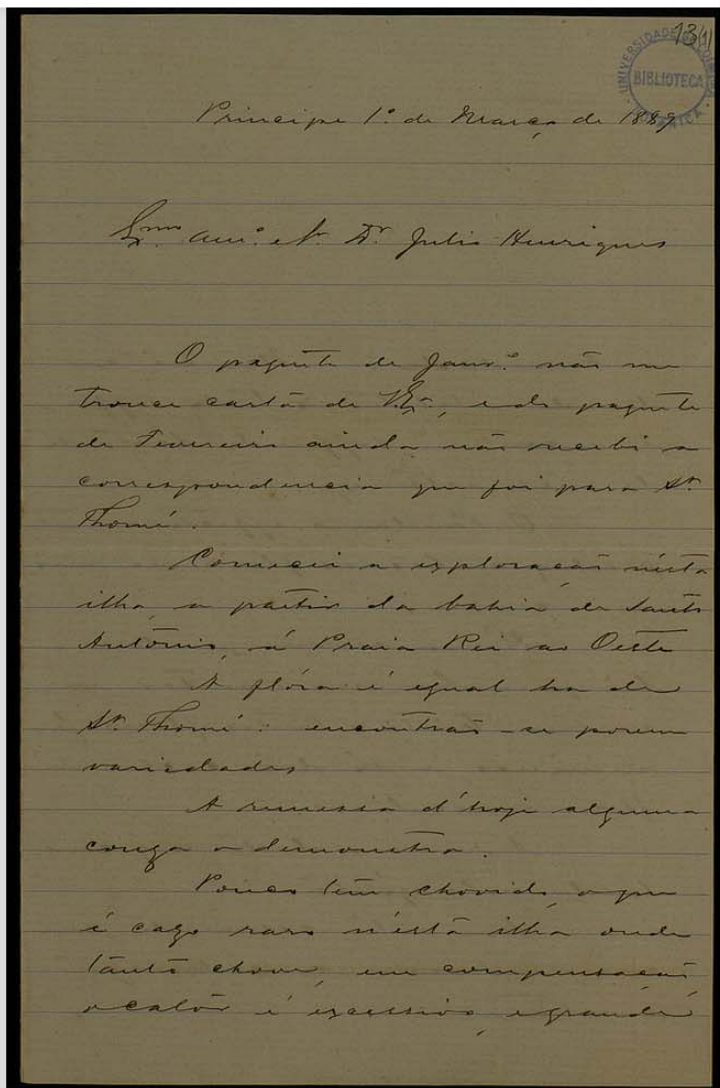 13(1)
UNIVERSIDADE DE COIMBRA
BIBLIOTECA
BOTANICA
Principe 1º de Março de 1889
Exmo amº e Sr Dr Julio Henriques
O paquete de Janrº não me
trouce carta de VExª, e do paquete
de Fevereiro ainda não recebi a
correspondencia que foi para St.
Thomé.
Comecei a exploracão n'esta
ilha, a partir da bahia de Santo
António, á Praia Rei ao Oeste
A flóra é egual ha de
St. Thomé: encontrão-se porem
variedades
A remessa d'hoje alguma
couza o demonstra.
Pouco tem chovido, o que
é cazo raro n'esta ilha onde
tanto chove, em compensacão,
o calôr é excessivo, e grande